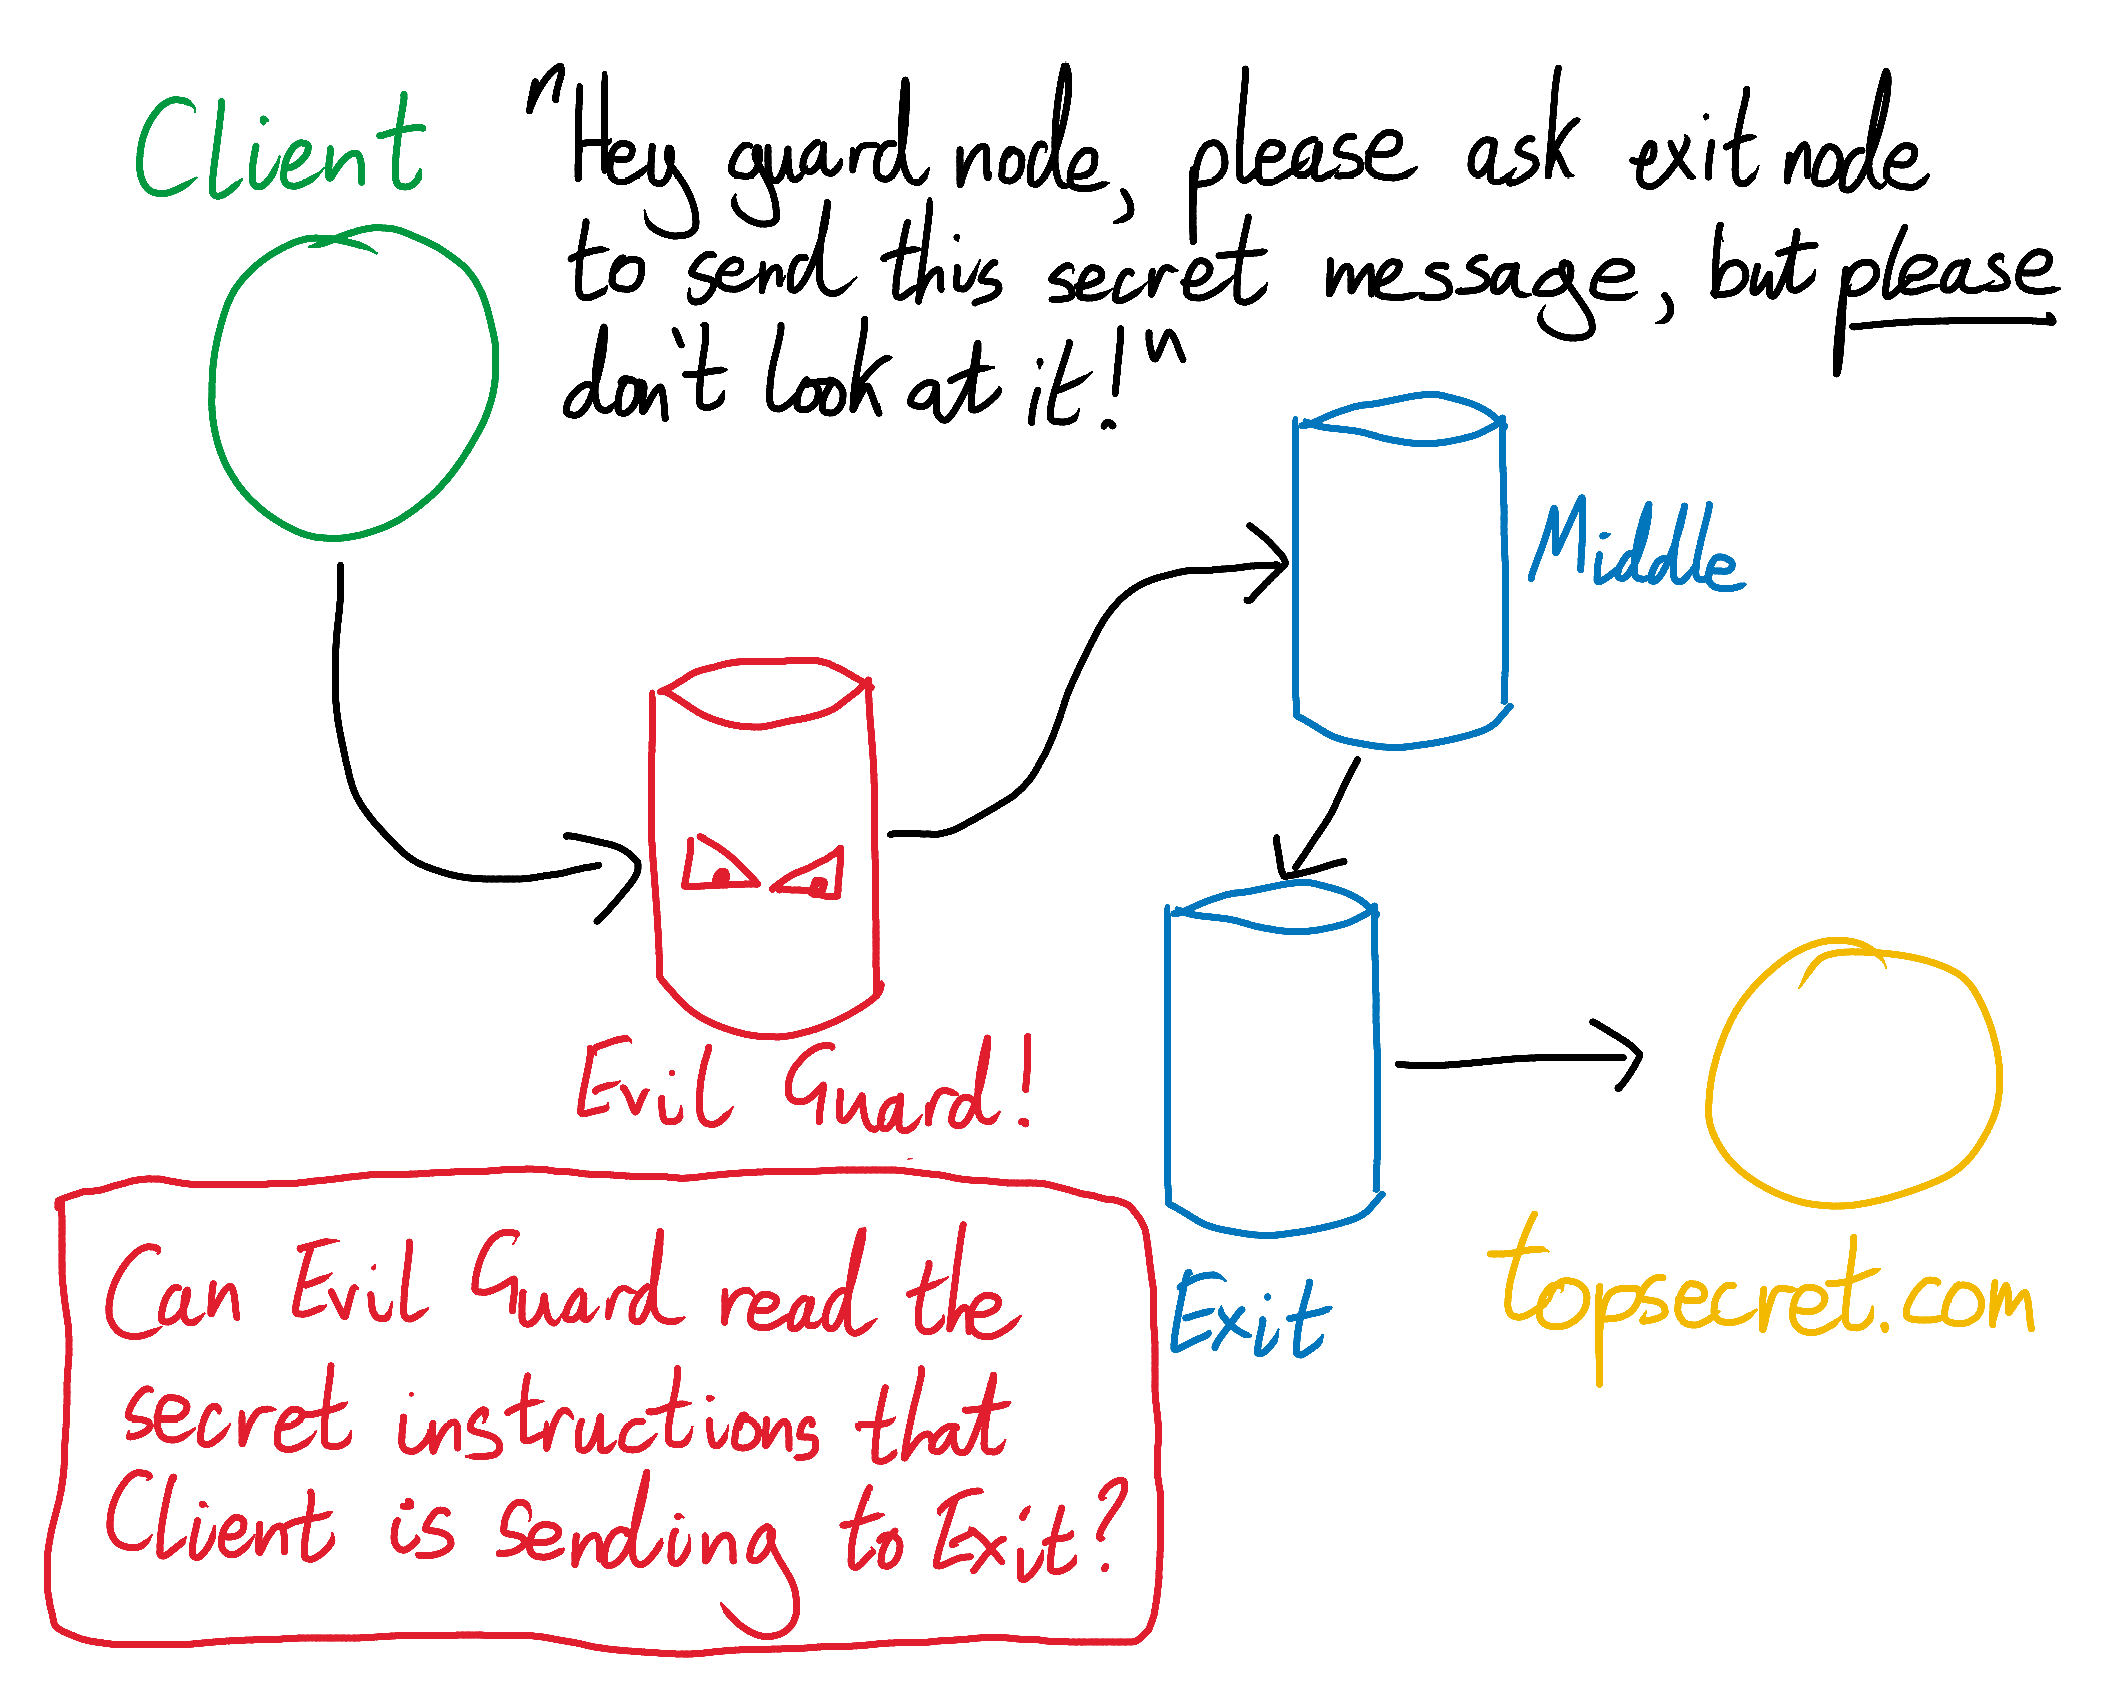 Client
"Hey guard node, please ask exit node
to send this secret message, but please
don't look at it!"
Middle
Evil Guard!
Exit
topsecret.com
Can Evil Guard read the
secret instructions that
Client is sending to Exit?